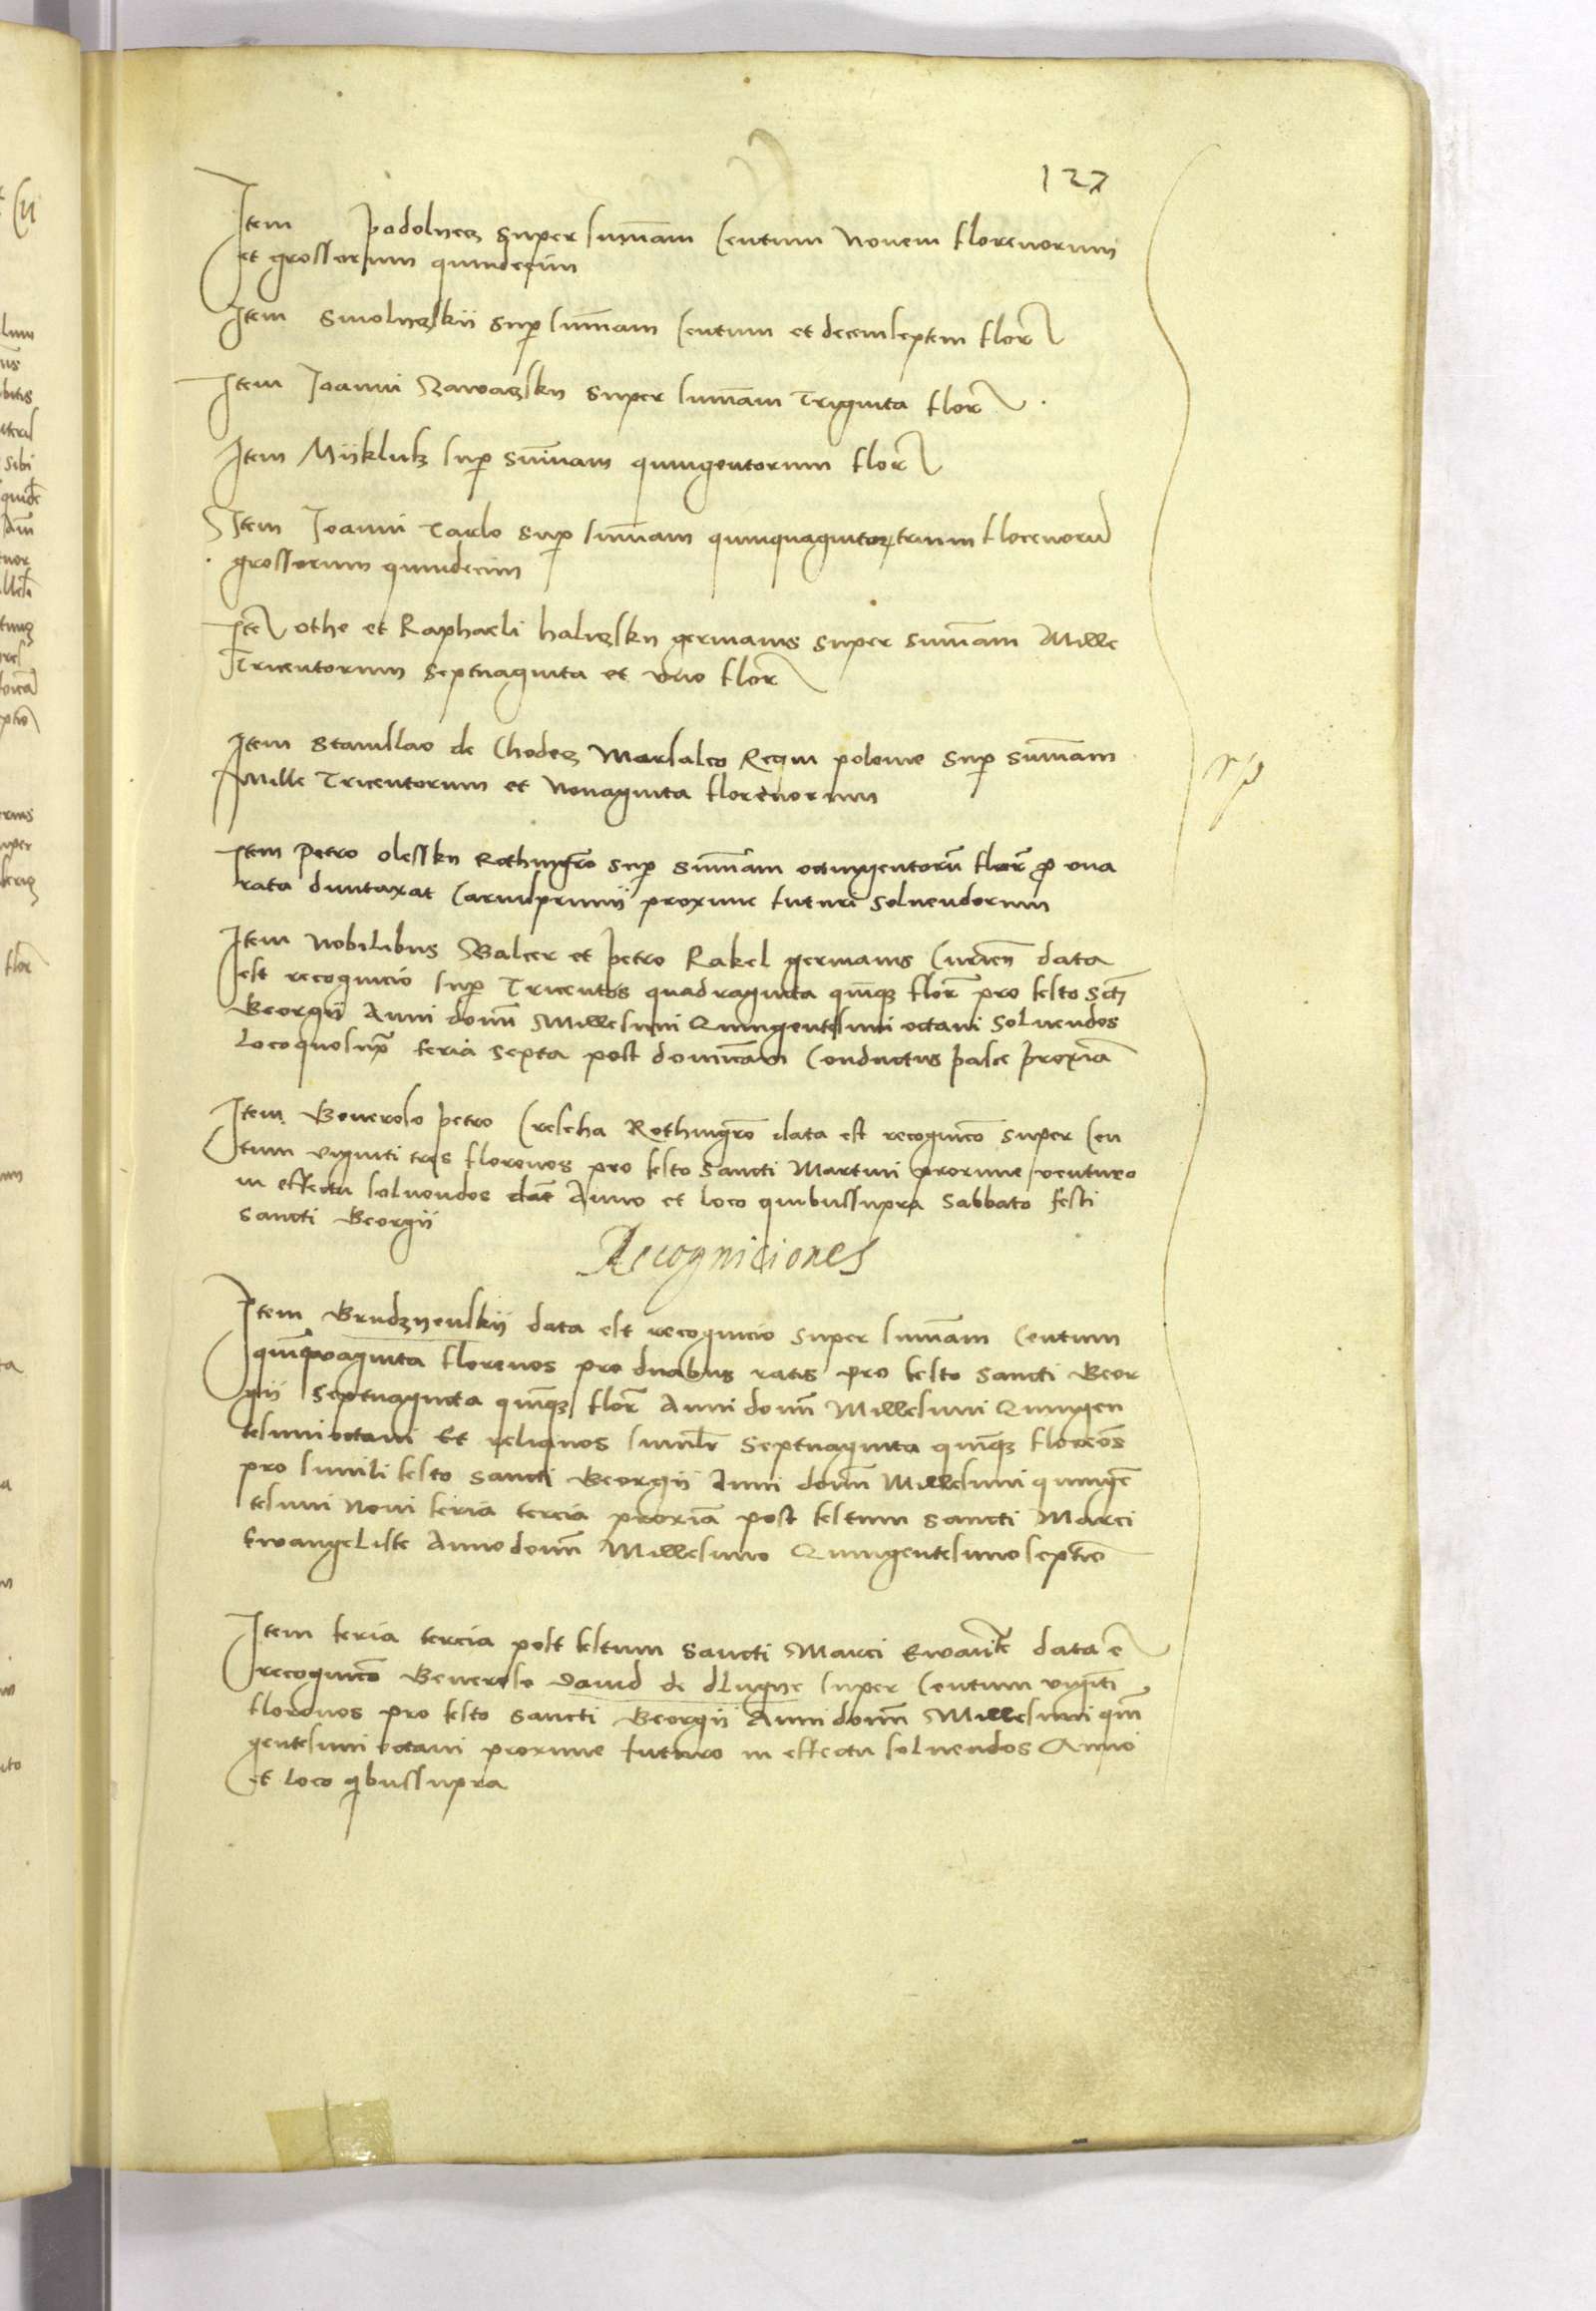 127
Item Podolyecz super sum̄am Centum Novem florenorum
et grossorum quindecim
Item Smolyczskii sup̱ sum̄am Centum et decemseptem flor̄
Item Joanni Zawaczsky super sum̄am Triginta flor̄
Item Miikluss sup̱ Sum̄am quingentorum flor̄
Item Joanni Tarlo sup̱ sum̄am quinquaginta trium florenorū
grossorum quindecim
Itē othe et Raphaeli haliczsky germanis super sum̄am Mille
Tricentorum Septuaginta et vno flor̄
Item Stanislao de Chodecz Marsalco Regni polonie sup̱ sum̄am
Mille Tricentorum et Nonaginta florenorum
Item Petro olessky Rothmgr̄o sup̱ Sum̄am octingentorū flor̄ p̱ vna
rata duntaxat Carnisprivii proxime futuri solvendorum
Item Nobilibus Balcer et Petro Rakel germanis Curien̄ data
est recognicio sup̱ Tricentos quadraginta quīqꝫ flor̄ pro festo Scti
Georgii Anni domī Millesimi Quingentesimi octavi Solvendos
Loco quo supra feria Sexta post domīcam Conductus pasce proxīa
Item Generoso Petro Creseha Rothmgr̄o data est recognicō super Cen
tum viginti tres florenos pro festo Sancti Martini proxime venturo
in effectu solvendos dat̄ Anno et loco quibussupra Sabbato festi
Sancti Georgii
Recogniciones
Item Grudzyenskii data est recognicio super sum̄am Centum
quīquaginta florenos pro duabus ratis pro festo Sancti Geor
gii Septuaginta quīqꝫ flor̄ Anni domī Millesimi Quingen
tesimi octavi Et reliquos similr̄ Septuaginta quīqꝫ florēos
pro simili festo Sancti Georgii Anni domī Millesimi quingē
tesimi Noni feria tercia proxīa post festum Sancti Marci
Ewangeliste Anno domī Millesimo Quingentesimo septīo
Item feria tercia post festum Sancti Marci Ewan̄te data ē
recognicō Generoso David de dlugye super Centum vigīti
florenos pro festo Sancti Georgii Anni domī Millesimi quī
gentesimi octavi proxime futuro in effectu solvendos Anno
et loco qbussupra